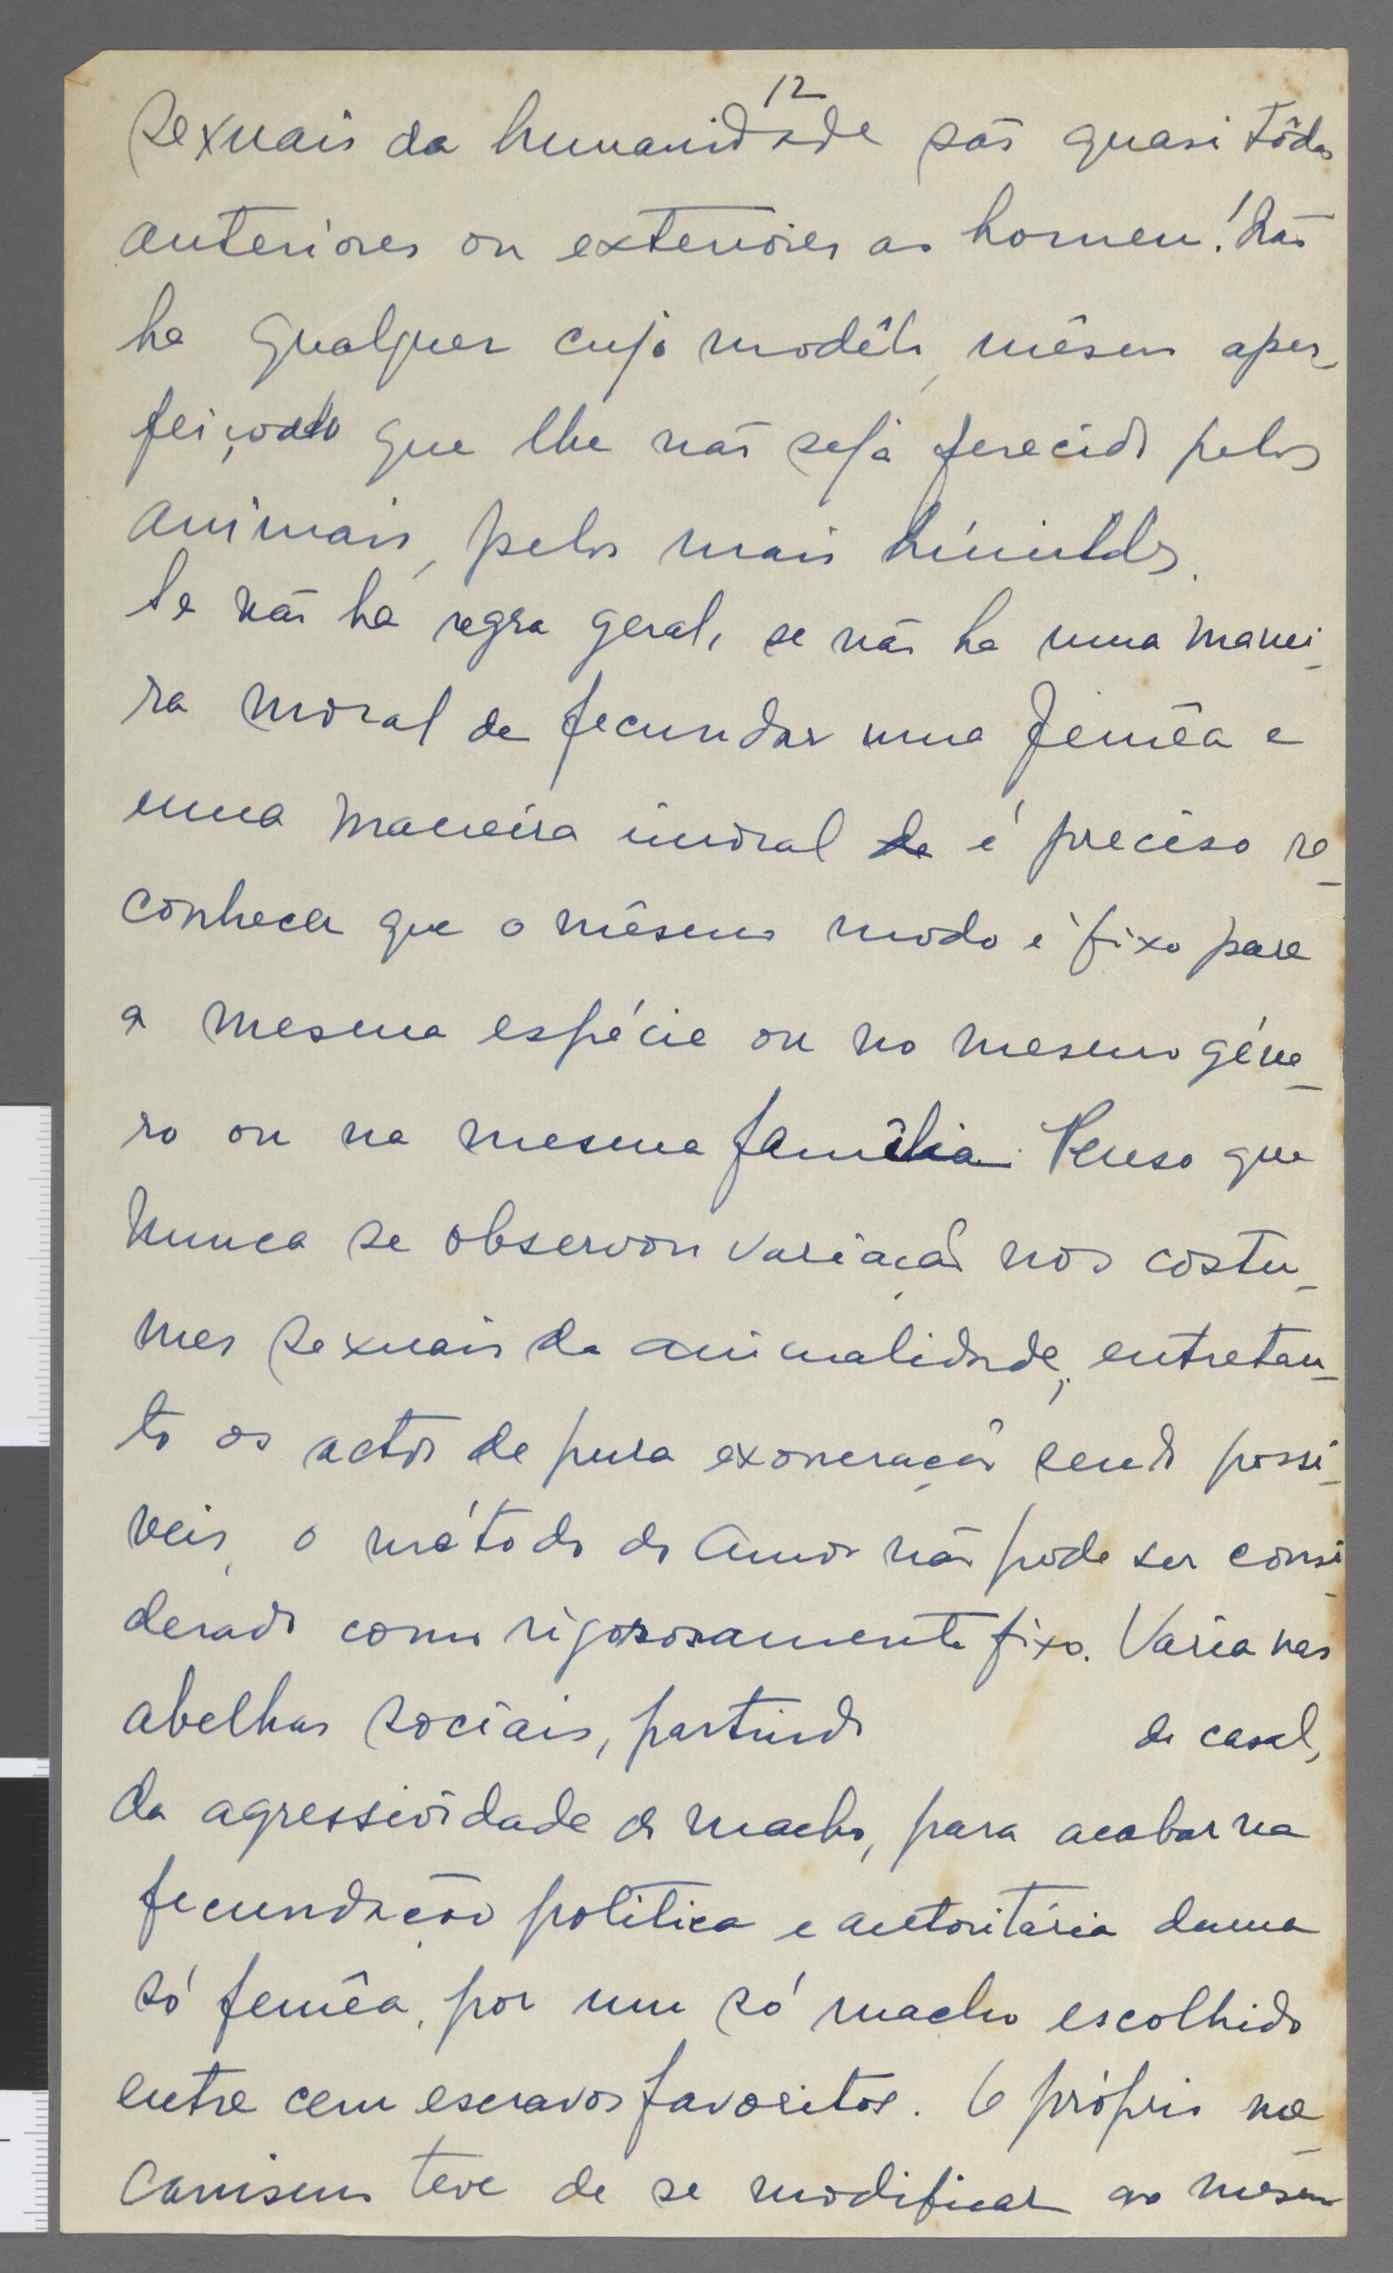 12
sexuais da humanidade são quasi tôdas
anteriores ou exteriores ao homem! Não
ha qualquer cujo modêlo, mêsmo aper-
feiçoado que lhe não seja ferecido pelos
animais, pelos mais húmildes.
Se não ha regra geral, se não ha uma manei-
ra moral de fecundar uma femêa e
uma maneira imoral de é preciso re-
conhecer que o mêsmo modo é fixo para
a mesma espécie ou no mesmo géne-
ro ou na mesma família. Penso que
nunca se observou variação nos costu-
mes sexuais da animalidade; entretan-
to os actos de pura exoneração sendo possi-
veis, o método do amor não pode ser consi-
derado como rigorosamente fixo. Varia nas
abelhas sociais, partindo do casal,
da agressividade do macho, para acabar na
fecundação politica e autoritária duma
só femêa, por um só macho escolhido
entre cem escravos favoritos. O próprio me-
canismo teve de se modificar ao mêsmo